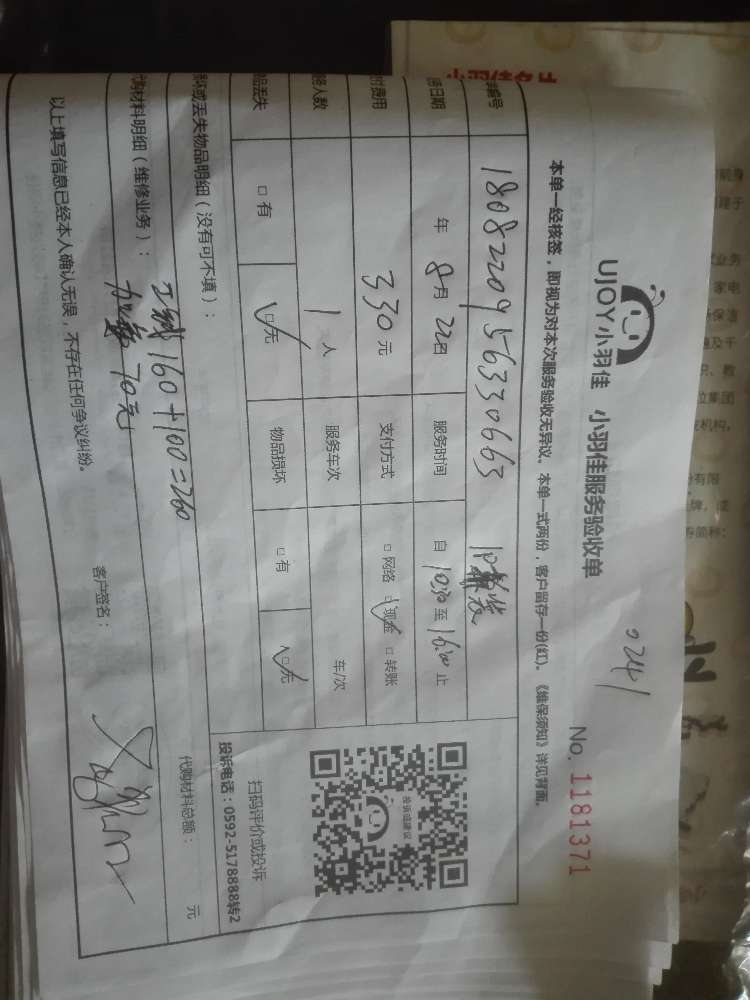 0241
UJOY小羽佳 小羽佳服务验收单
No. 1181371
本单一经核签，即视为对本次服务验收无异议。本单一式两份，客户留存一份(红)。《维保须知》详见背面。
编号 18082209563330663
务日期 年 8月 22日 服务时间 自 10:30 至 16:00 止
付费用 330元 支付方式 □ 网络 ☑ 现金 □ 转账
人数 1 人 服务车次 车/次
品丢失 □ 有 ☑ 无 物品损坏 □ 有 ☑ 无
坏或丢失物品明细（没有可不填）：
购材料明细（维修业务）： 160+100=260
70元
代购材料总额： 元
以上填写信息已经本人确认无误，不存在任何争议纠纷。
客户签名：
投诉或建议
扫码评价或投诉
投诉电话：0592-5178888转2